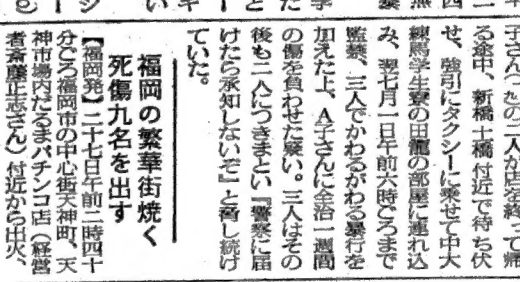 子さん（二〇）の二人が店を終って帰
る途中、新橋土橋付近で待ち伏
せ、強引にタクシーに乗せて中大
練馬学生寮の田籠の部屋に連れ込
み、翌七月一日午前六時ごろまで
監禁、三人でかわるがわる暴行を
加えた上、A子さんに全治一週間
の傷を負わせた疑い。三人はその
後も二人につきまとい『警察に届
けたら承知しないぞ』と脅し続け
ていた。
福岡の繁華街焼く
死傷九名を出す
【福岡発】二十七日午前二時四十
分ごろ福岡市の中心街天神町、天
神市場内だるまパチンコ店（経営
者斎藤正志さん）付近から出火、